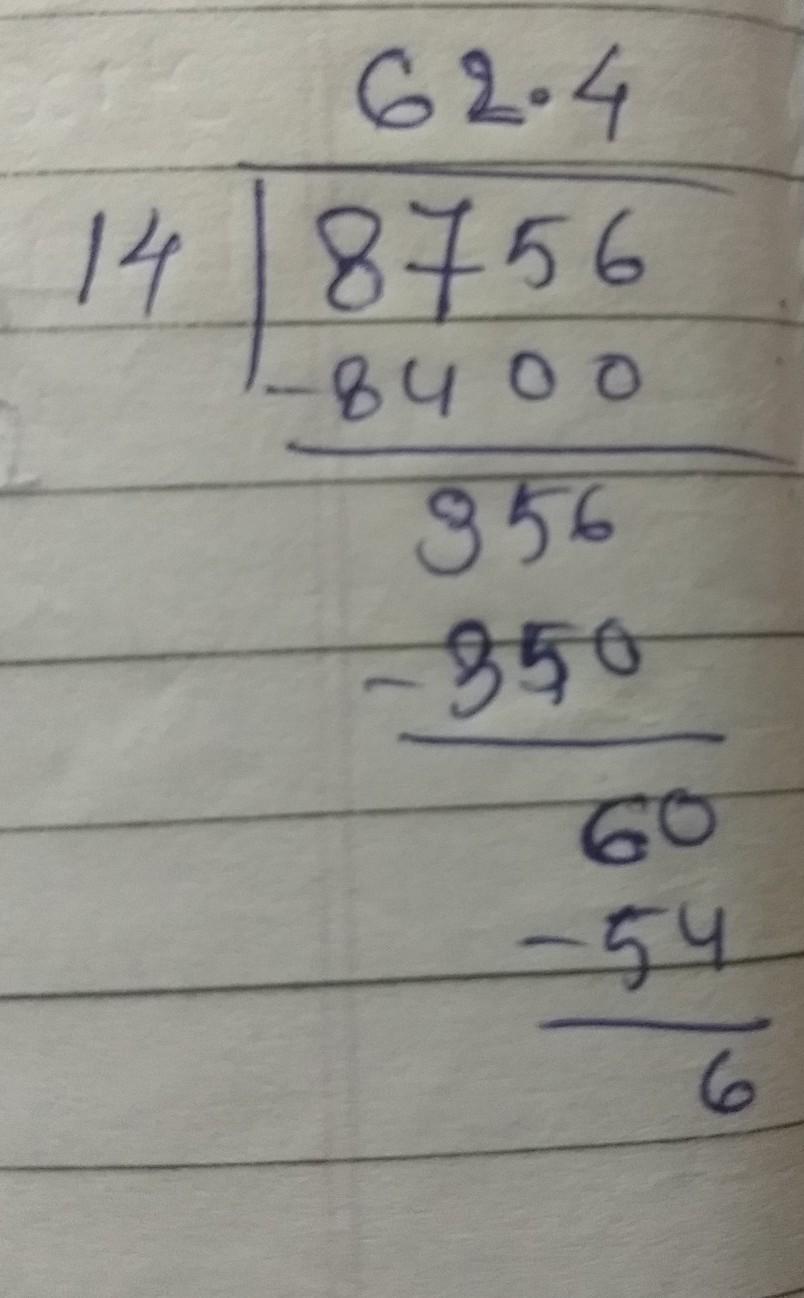 62.4
14 8756
-8400
356
-350
60
-54
6